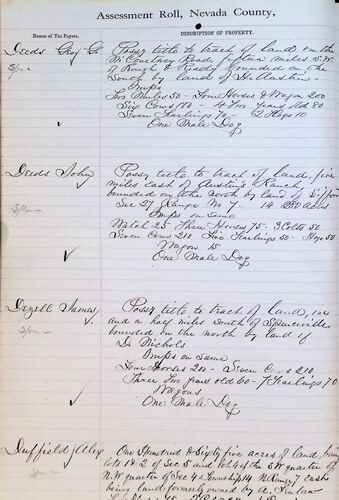 Assessment Roll, Nevada County,
Names of Tax Payers. DESCRIPTION OF PROPERTY.
Deeds Geo G. Possy title to tract of land on the
McCourtney Road fifteen miles S.W.
of Rough & Ready bounded on the
South by land of H. Austin
Imps
Two Mules 50 - Four Horses & Wagon 200
Six Cows 180 - 4 Two years old 80
Seven Yearlings 70 - 2 Hogs 10
One Male Dog
Deeds John Possy title to tract of land, five
miles east of Austin's Ranch,
bounded on the North by land of Gifford
Sec 27 Range No 7 280 acres
Imps on same
Watch 25 Three Horses 75 - 3 Colts 50
Seven Cows 210 Five Yearlings 50 - Hogs 50
Wagon 15
One Male Dog
Dezell James Possy title to tract of land, one
and a half miles South of Spenceville
bounded on the north by land of
Dr Nichols
Imps on Same
Four Horses 200 - Seven Cows 210
Three Two years old 60 - 7 Yearlings 70
Wagons
One Male Dog
Duffield Alex One Hundred & Sixty five acres of land, being
lots 1 & 2 of Sec 5 and lot 4 of the S.W quarter of
N.W quarter of Sec 4 Township 14 N Range 7 East
being land formerly owned by A.